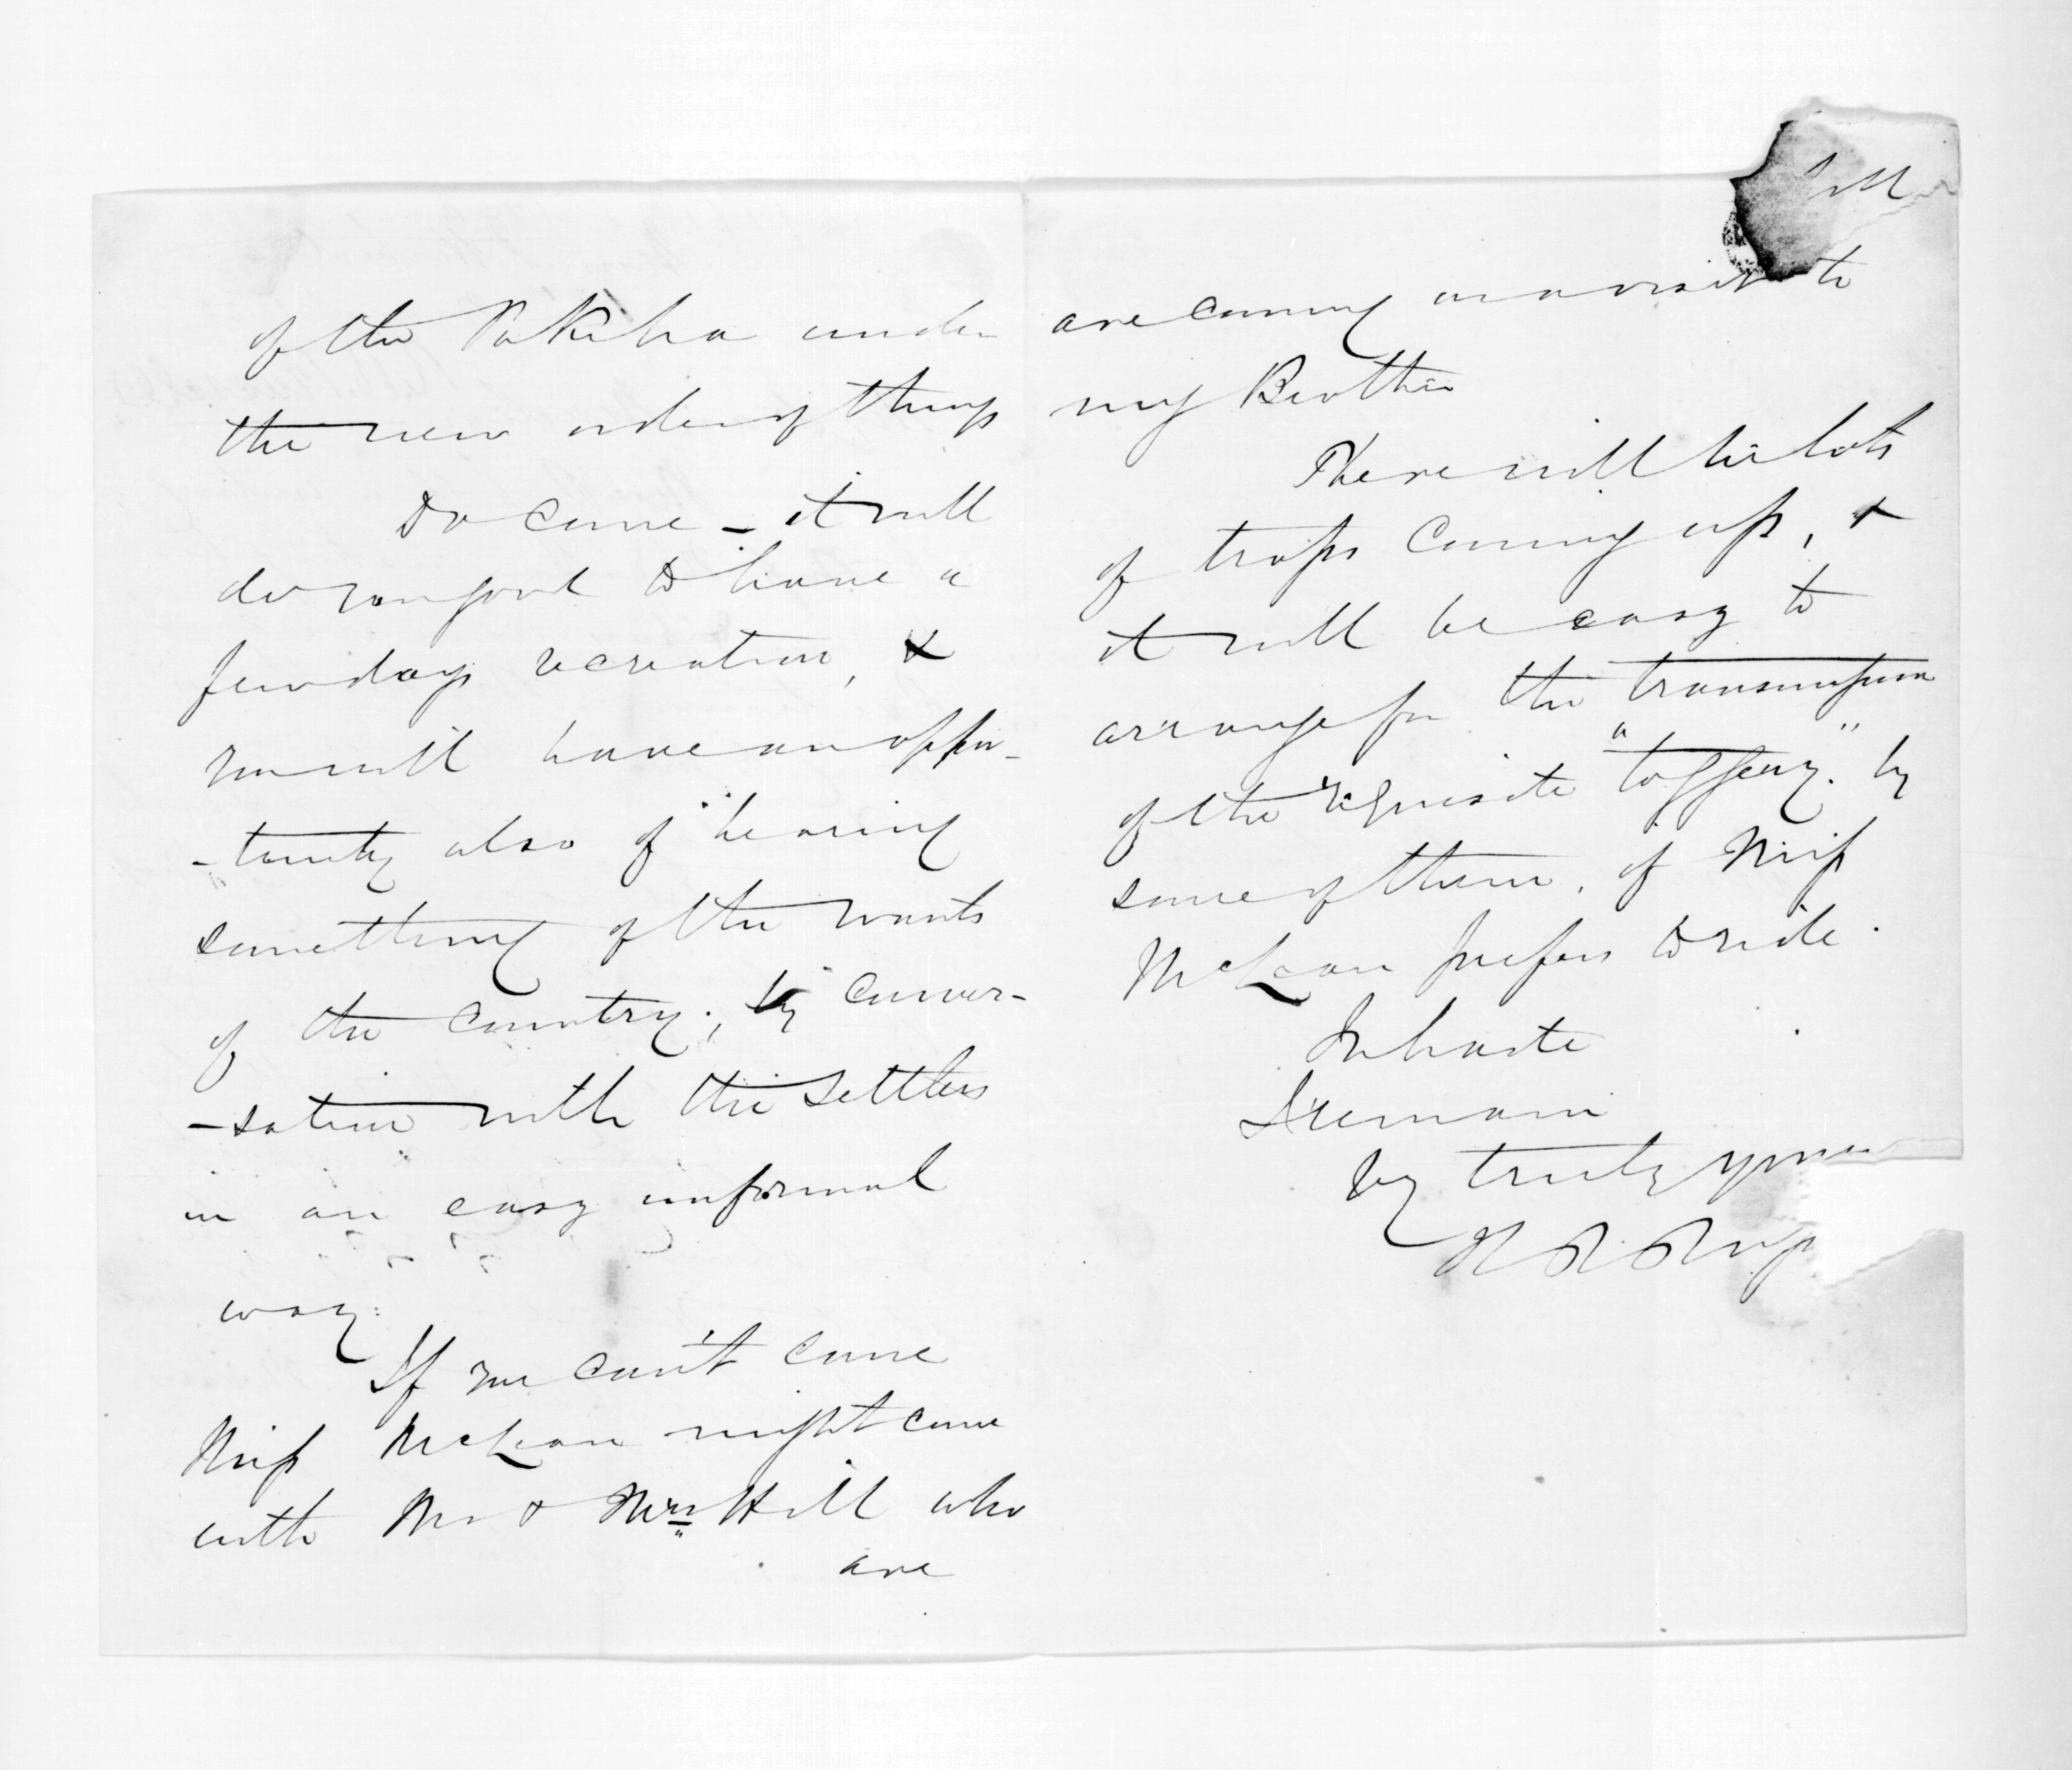 of the Pakeha under
the new order of things
Do come - it will
do you good to have a
few days recreation, &
you will have an oppor-
-tunity also of hearing
something of the wants
of the country; by conver-
-sation with the settlers
in an easy informal
way.
If you can't come
Miss McLean might come
with Mr & Mrs Hill who
are
are coming on a visit to
my Brother
There will be lots
of traps coming up, &
it will be easy to
arrange for the transmission
of the requisite "toggery" by
some of them, if Miss
McLean prefers to ride.
In haste
I remain
Vy truly yours